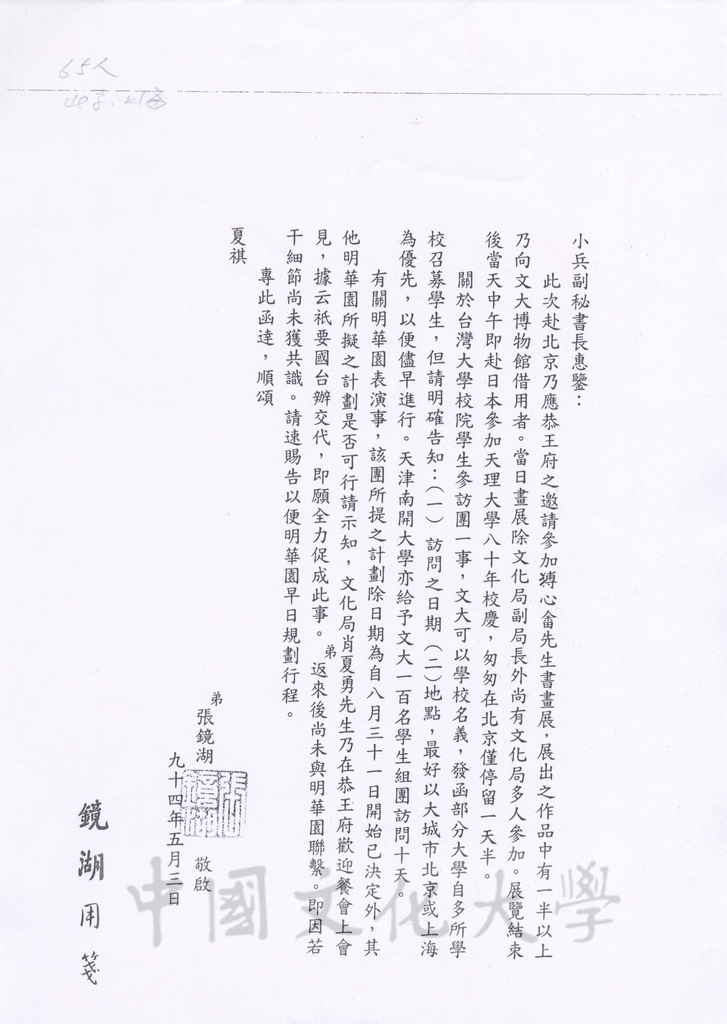 65人
小兵副秘書長惠鑒：
此次赴北京乃應恭王府之邀請參加溥心畬先生書畫展，展出之作品中有一半以上
乃向文大博物館借用者。當日畫展除文化局副局長外尚有文化局多人參加。展覽結束
後當天中午即赴日本參加天理大學八十年校慶，匆匆在北京僅停留一天半。
關於台灣大學校院學生參訪團一事，文大可以學校名義，發函部分大學自多所學
校召募學生，但請明確告知：(一）訪問之日期（二)地點，最好以大城市北京或上海
為優先，以便儘早進行。天津南開大學亦給予文大一百名學生組團訪問十天。
有關明華園表演事，該團所提之計劃除日期為自八月三十一日開始已決定外，其
他明華園所擬之計劃是否可行請示知，文化局肖夏勇先生乃在恭王府歡迎餐會上會
見，據云祇要國台辦交代，即願全力促成此事。弟返來後尚未與明華園聯繫。即因若
干細節尚未獲共識。請速賜告以便明華園早日規劃行程。
專此函達，順頌
夏祺
弟張鏡湖 敬啟
九十四年五月三日
鏡湖用箋
中國文化大學